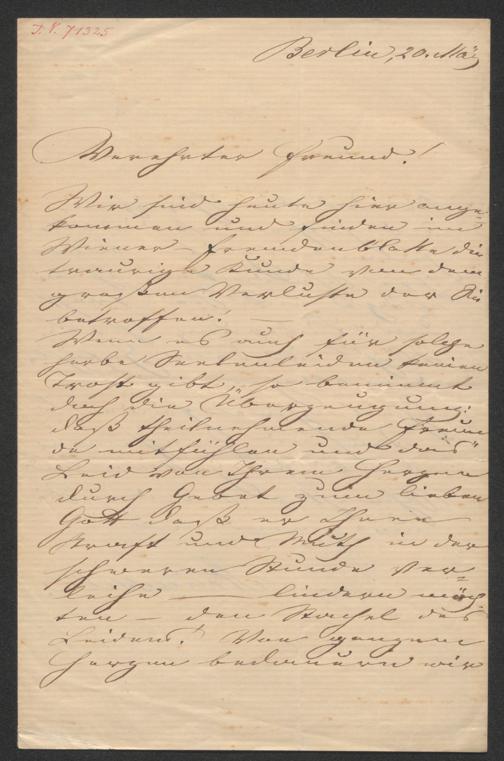 I. N. 71325
Berlin, 20. Mai
Verehrter Freund!
Wir sind heute hier ange-
kommen und finden im
Wiener-Fremdenblatte die
traurige Kunde von dem
großen Verluste der Sie
betroffen! —
Wenn es auch für solche
herbe Seelenleiden keinen
Trost gibt, so benimmt
doch die Überzeugung:
daß theilnehmende Freun
de mitfühlen und das
Leid von Ihrem Herzen
durch Gebet zum lieben
Gott daß er Ihnen
Kraft und Muth in der
schweren Stunde ver-
leihe — lindern möch
ten — den Stachel des
Leidens! Von ganzem
Herzen bedauern wir